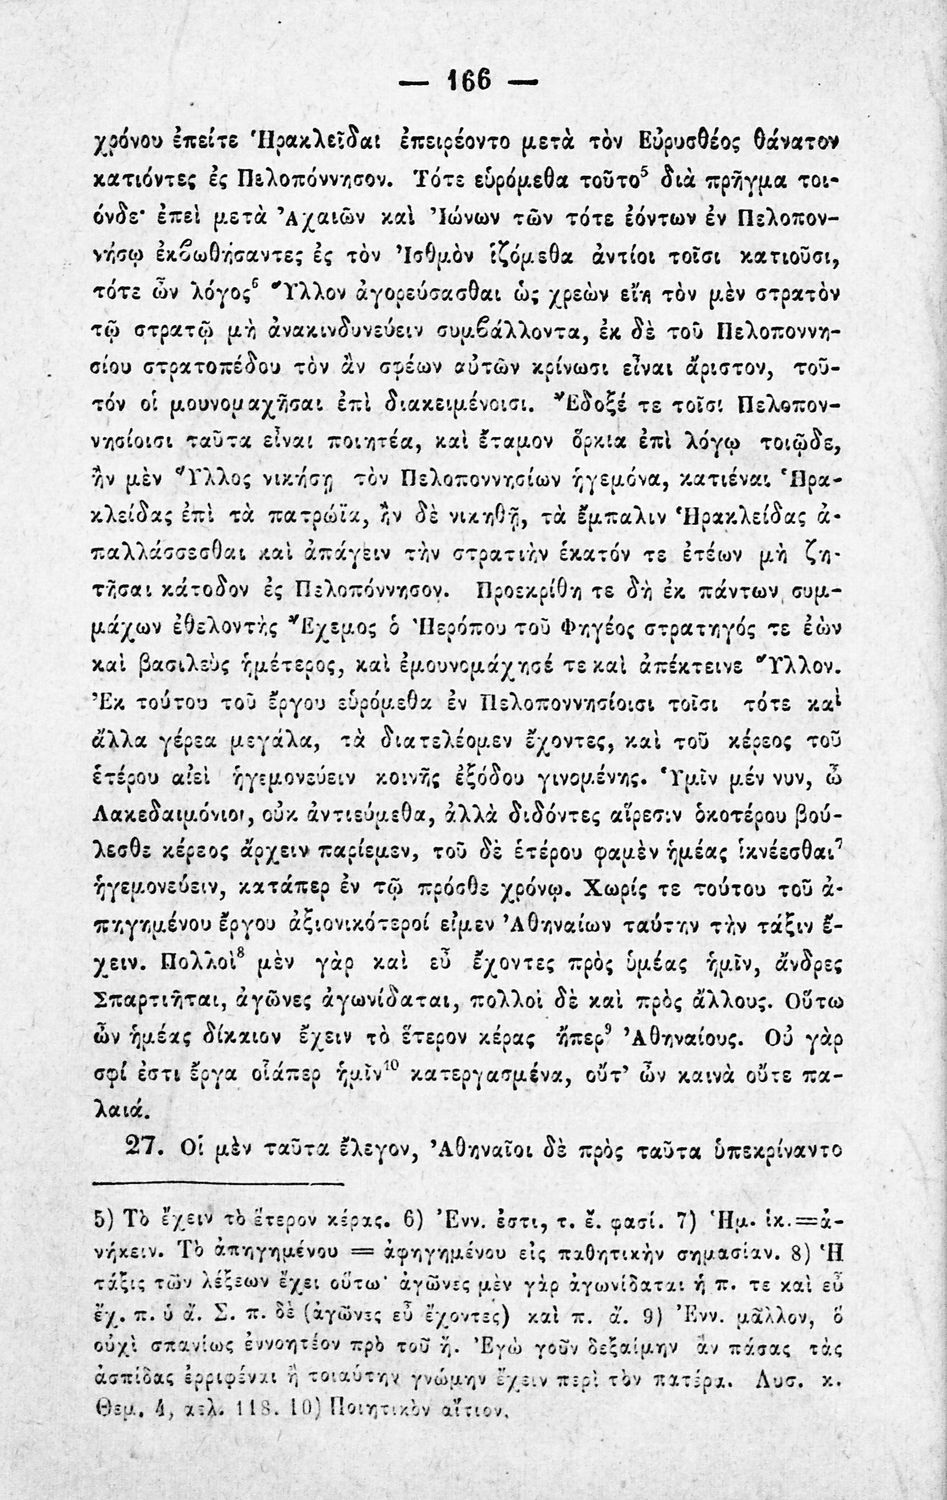 — 166 —
χρόνου ἐπείτε Ἡρακλεῖδαι ἐπειρέοντο μετὰ τὸν Εὐρυσθέος θάνατον
κατιόντες ἐς Πελοπόννησον. Τότε εὑρόμεθα τοῦτο⁵ διὰ πρῆγμα τοι-
όνδε· ἐπεὶ μετὰ Ἀχαιῶν καὶ Ἰώνων τῶν τότε ἐόντων ἐν Πελοπον-
νήσῳ ἐκϐωθήσαντες ἐς τὸν Ἰσθμὸν ἱζόμεθα ἀντίοι τοῖσι κατιοῦσι,
τότε ὦν λόγος⁶ Ὕλλον ἀγορεύσασθαι ὡς χρεὼν εἴη τὸν μὲν στρατὸν
τῷ στρατῷ μὴ ἀνακινδυνεύειν συμϐάλλοντα, ἐκ δὲ τοῦ Πελοποννη-
σίου στρατοπέδου τὸν ἂν σφέων αὐτῶν κρίνωσι εἶναι ἄριστον, τοῦ-
τόν οἱ μουνομαχῆσαι ἐπὶ διακειμένοισι. Ἔδοξέ τε τοῖσι Πελοπον-
νησίοισι ταῦτα εἶναι ποιητέα, καὶ ἔταμον ὅρκια ἐπὶ λόγῳ τοιῷδε,
ἢν μὲν Ὕλλος νικήσῃ τὸν Πελοποννησίων ἡγεμόνα, κατιέναι Ἡρα-
κλείδας ἐπὶ τὰ πατρώϊα, ἢν δὲ νικηθῇ, τὰ ἔμπαλιν Ἡρακλείδας ἀ-
παλλάσσεσθαι καὶ ἀπάγειν τὴν στρατιὴν ἑκατόν τε ἐτέων μὴ ζη-
τῆσαι κάτοδον ἐς Πελοπόννησον. Προεκρίθη τε δὴ ἐκ πάντων συμ-
μάχων ἐθελοντὴς Ἔχεμος ὁ Ἠερόπου τοῦ Φηγέος στρατηγός τε ἐὼν
καὶ βασιλεὺς ἡμέτερος, καὶ ἐμουνομάχησέ τε καὶ ἀπέκτεινε Ὕλλον.
Ἐκ τούτου τοῦ ἔργου εὑρόμεθα ἐν Πελοποννησίοισι τοῖσι τότε καὶ
ἄλλα γέρεα μεγάλα, τὰ διατελέομεν ἔχοντες, καὶ τοῦ κέρεος τοῦ
ἑτέρου αἰεὶ ἡγεμονεύειν κοινῆς ἐξόδου γινομένης. Ὑμῖν μέν νυν, ὦ
Λακεδαιμόνιοι, οὐκ ἀντιεύμεθα, ἀλλὰ διδόντες αἵρεσιν ὁκοτέρου βού-
λεσθε κέρεος ἄρχειν παρίεμεν, τοῦ δὲ ἑτέρου φαμὲν ἡμέας ἱκνέεσθαι⁷
ἡγεμονεύειν, κατάπερ ἐν τῷ πρόσθε χρόνῳ. Χωρίς τε τούτου τοῦ ἀ-
πηγημένου ἔργου ἀξιονικότεροί εἰμεν Ἀθηναίων ταύτην τὴν τάξιν ἔ-
χειν. Πολλοὶ⁸ μὲν γὰρ καὶ εὖ ἔχοντες πρὸς ὑμέας ἡμῖν, ἄνδρες
Σπαρτιῆται, ἀγῶνες ἀγωνίδαται, πολλοὶ δὲ καὶ πρὸς ἄλλους. Οὕτω
ὦν ἡμέας δίκαιον ἔχειν τὸ ἕτερον κέρας ἤπερ⁹ Ἀθηναίους. Οὐ γὰρ
σφί ἐστι ἔργα οἷάπερ ἡμῖν¹⁰ κατεργασμένα, οὔτ' ὦν καινὰ οὔτε πα-
λαιά.
27. Οἱ μὲν ταῦτα ἔλεγον, Ἀθηναῖοι δὲ πρὸς ταῦτα ὑπεκρίναντο
5) Τὸ ἔχειν τὸ ἕτερον κέρας. 6) Ἐνν. ἐστι, τ. ἔ. φασί. 7) Ἡμ. ἱκ.=ἀ-
νήκειν. Τὸ ἀπηγημένου = ἀφηγημένου εἰς παθητικὴν σημασίαν. 8) Ἡ
τάξις τῶν λέξεων ἔχει οὕτω· ἀγῶνες μὲν γὰρ ἀγωνίδαται ἡ π. τε καὶ εὖ
ἔχ. π. ὑ ἄ. Σ. π. δὲ (ἀγῶνες εὖ ἔχοντες) καὶ π. ἄ. 9) Ἐνν. μᾶλλον, ὃ
οὐχὶ σπανίως ἐννοητέον πρὸ τοῦ ἤ. Ἐγὼ γοῦν δεξαίμην ἂν πάσας τὰς
ἀσπίδας ἐρριφέναι ἢ τοιαύτην γνώμην ἔχειν περὶ τὸν πατέρα. Λυσ. κ.
Θεμ. 4, σελ. 118. 10) Ποιητικὸν αἴτιον.